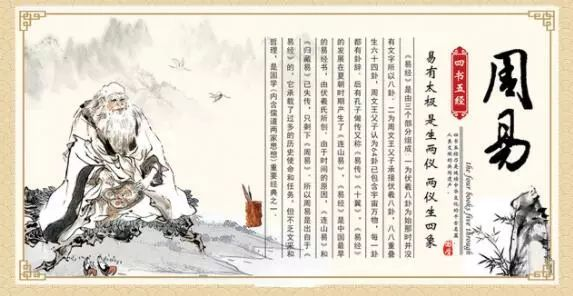 周易
四书五经
the four books five through
易有太极是生两仪 两仪生四象
《易经》是由三个部分组成,一为伏羲八卦为始那时并没
有文字所以八卦、二为周文王父子承接伏羲八卦,八八重叠
生六十四卦,周文王父子认为64卦已包含宇宙万物,每一卦
都有卦辞、后有孔子做传又称《易传》《十翼》。《易经》
的发展在夏朝时期产生了《连山易》,《易经》是中国最早
的易经书,由伏羲氏所创。由于时间的原因,《连山易》和
《归藏易》已失传,只剩下《周易》。所以周易是出自于《
易经》的。它承载了过多的历史使命和任务,但不乏文采和
哲理,是国学(内含儒道两家思想)重要经典之一。